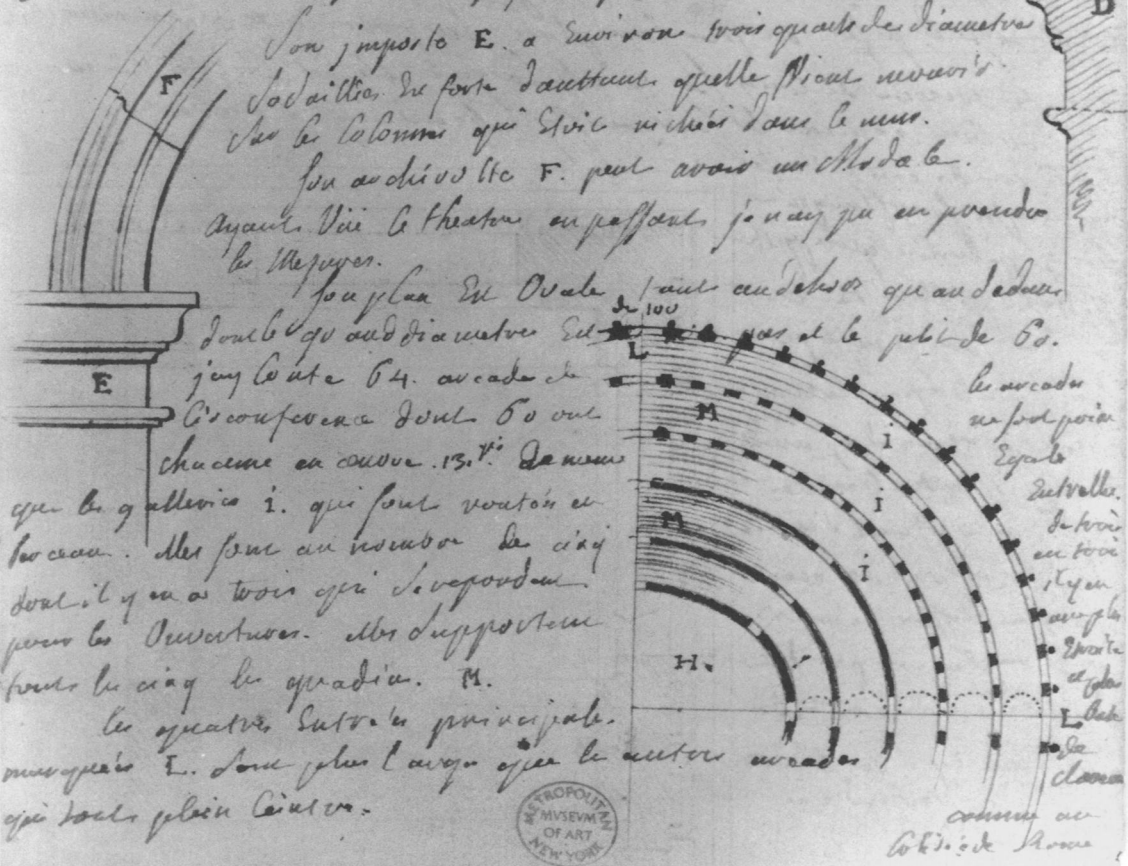 D
Son imposte E. a Environ trois quarts de diametre
de saillie. En sorte dauttant quelle vient mourir
sur les Colonnes qui Etoit nichées dans le mur.
F
son archivolte F. peut avoir un Modele.
Ayant Vüe le theatre en passant je nay pu en prendre
les Mesures.
son plan Est Ovale tant au dehors qu au dedans
dont le grand diametre Est de 100 pas et le petit de 60.
E
jay Conté 64. arcades de
Circonference dont 60 ont
chacune en œuvre .13. De meme
que les galleries i. qui sont voutés en
berceau. Elles sont au nombre de cinq
dont il y en a trois qui se repondent
pour les Ouvertures. Elles supportent
toute les cinq les gradin. M.
les quatres Entrées principale.
marquées L. sont plus large que le autres arcades
qui sont plein Ceintre.
L
M
i
i
M
i
H.
L
les arcades
ne sont point
Egale
Entrelles.
de trois
en trois
il y en
a
Etroite
et plus
Basse
de
comme au
Colisée de Rome
METROPOLITAN
MVSEVM
OF ART
NEW YORK